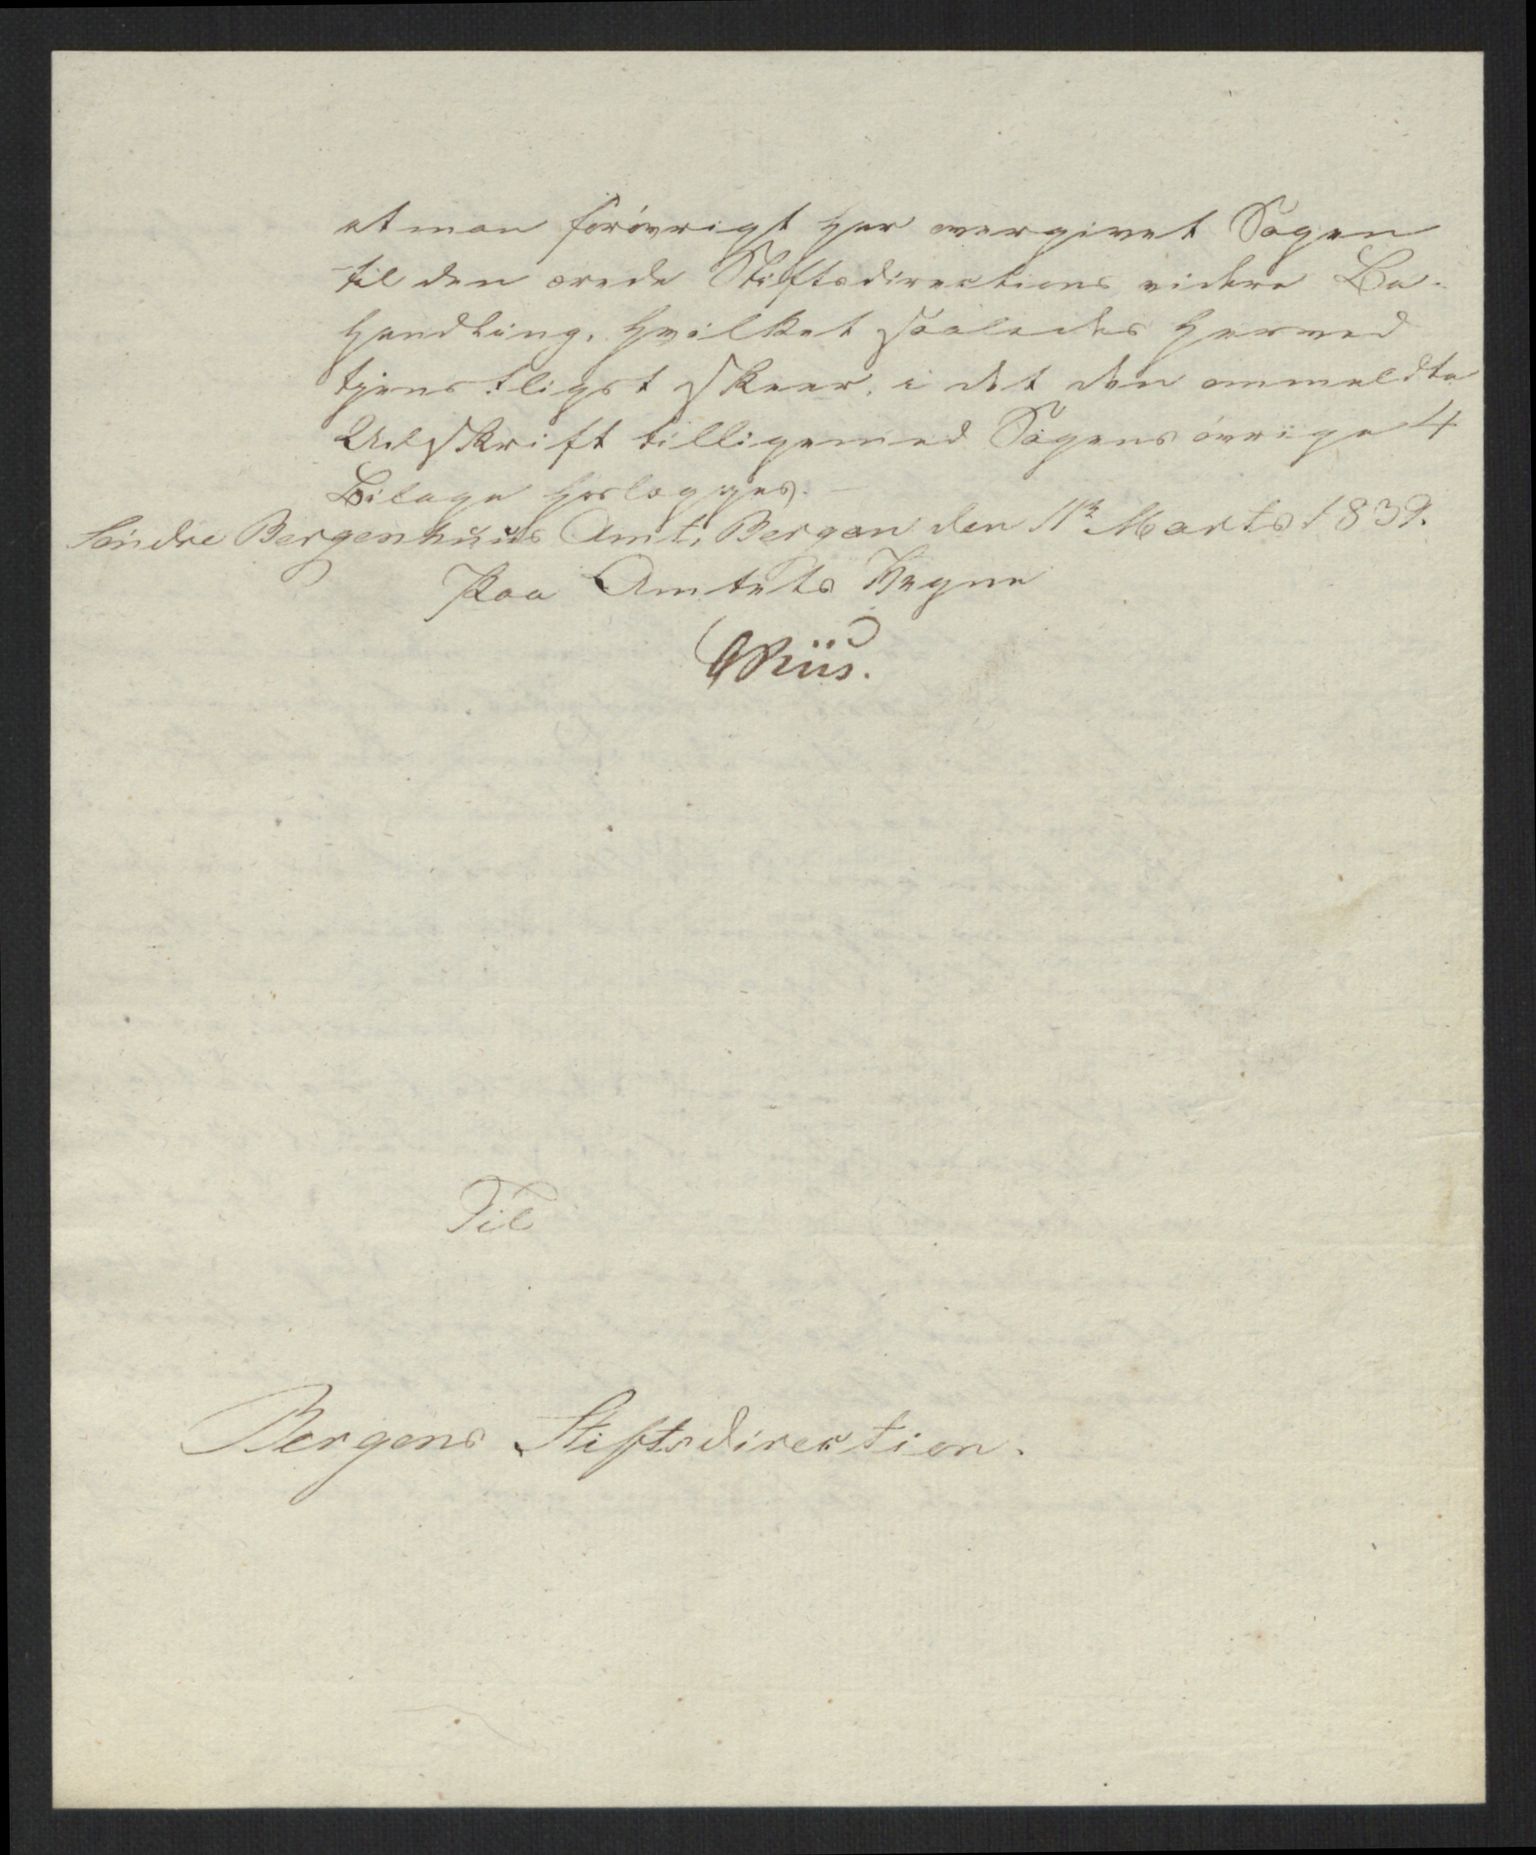 at man forøvrigt har overgivet Sagen
til den ærede Stiftsdirections videre Be-
handling, hvilket saaledes herved
tjenstligst skeer, i det den ommeldte
Udskrift tilligemed Sagens øvrige 4
Bilage hoslægges. —
Søndre Bergenhuus Amt, Bergen den 11te Marts 1839.
Paa Amtets Vegne
Riis.
Til
Bergens Stiftsdirection.